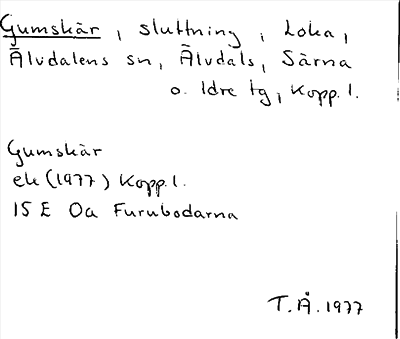 Gumskär, sluttning, Loka,
Älvdalens sn, Älvdals, Särna
o. Idre tg, Kopp.l.
Gumskär
ek (1977) Kopp.l.
15 E 0a Furubodarna
T.Å. 1977